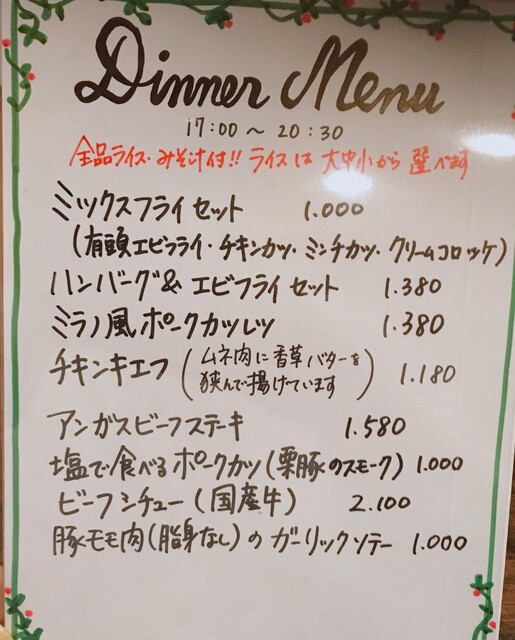 Dinner Menu
17:00 〜 20:30
全品ライス・みそ汁付!! ライスは 大中小から 選べます
ミックスフライセット 1.000
(有頭エビフライ・チキンカツ・ミンチカツ・クリームコロッケ)
ハンバーグ& エビフライセット 1.380
ミラノ風ポークカツレツ 1.380
チキンキエフ (ムネ肉に香草バターを 1.180
挟んで揚げています)
アンガスビーフステーキ 1.580
塩で食べるポークカツ(栗豚のスモーク) 1.000
ビーフシチュー(国産牛) 2.100
豚モモ肉(脂身なし)の ガーリックソテー 1.000